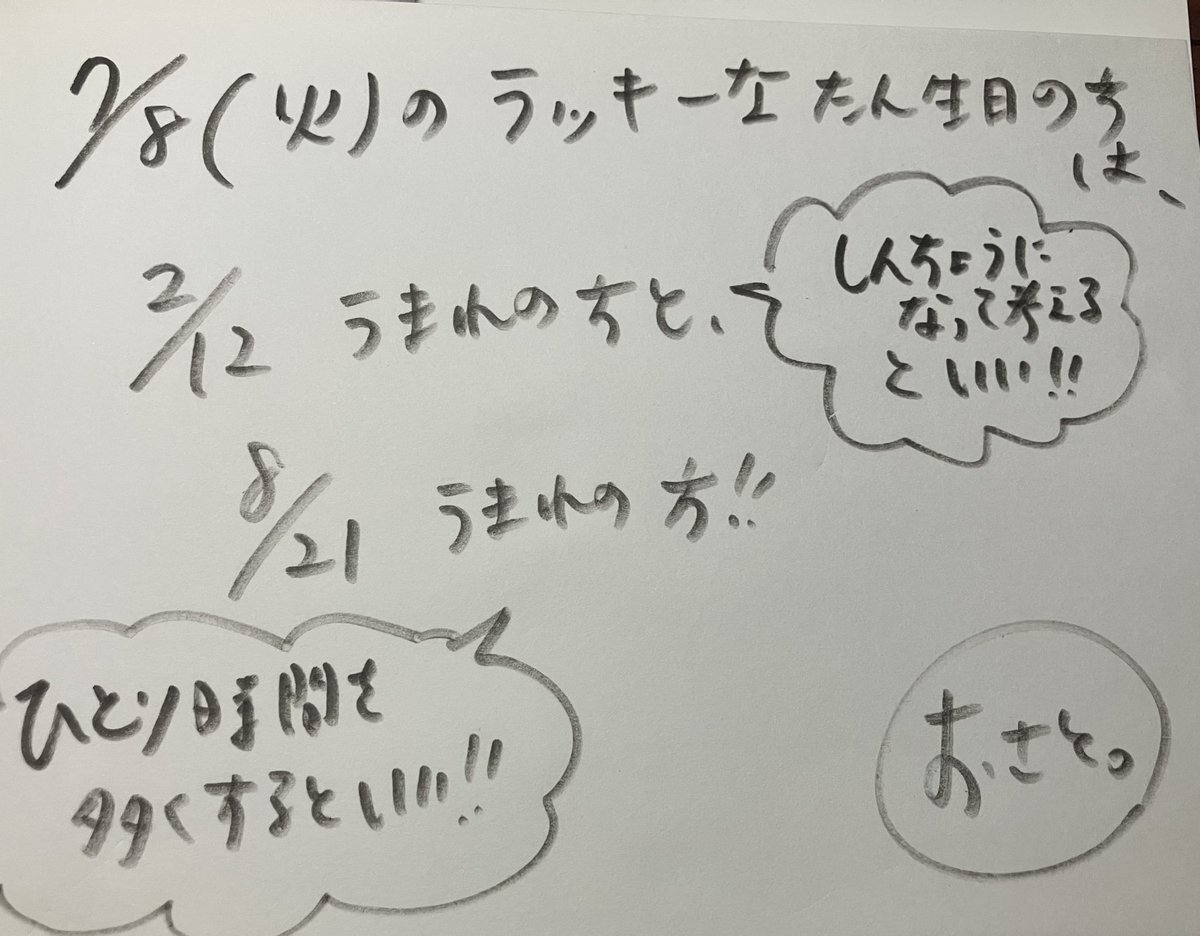 7/8(火)のラッキーなたん生日の方
は、
2/12 うまれの方と、
しんちょうに
なって考える
といい!!
8/21 うまれの方!!
ひとり時間を
多くするといい!!
おさと。